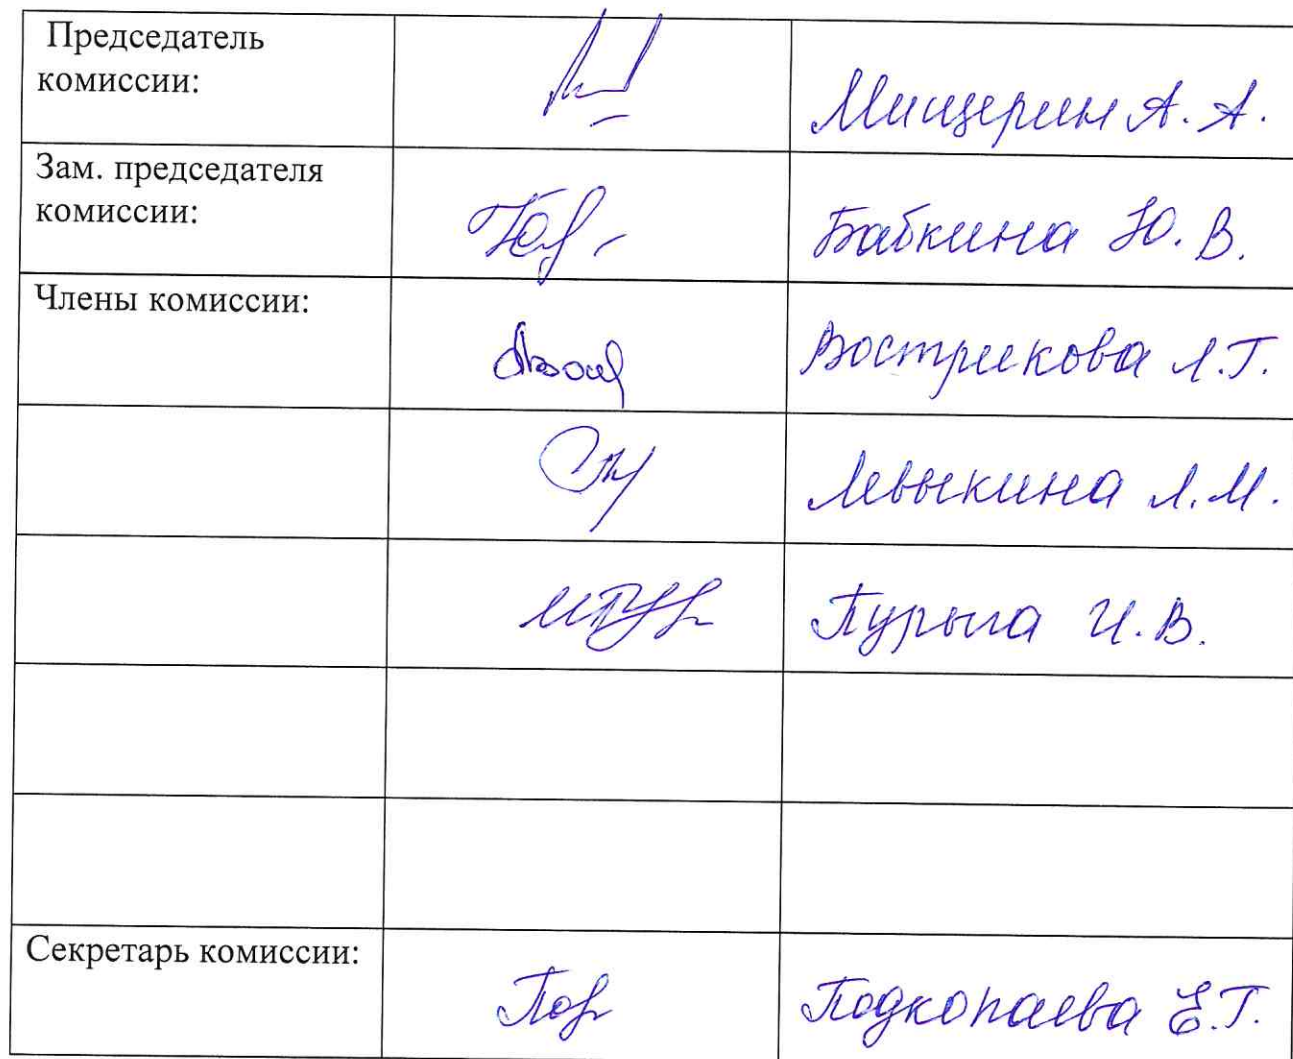 Председатель
комиссии:
Мищерин А. А.
Зам. председателя
комиссии:
Бабкина Ю. В.
Члены комиссии:
Вострикова Л.Г.
Левыкина Л.М.
Пурыга И.В.
Секретарь комиссии:
Подкопаева Е.Г.